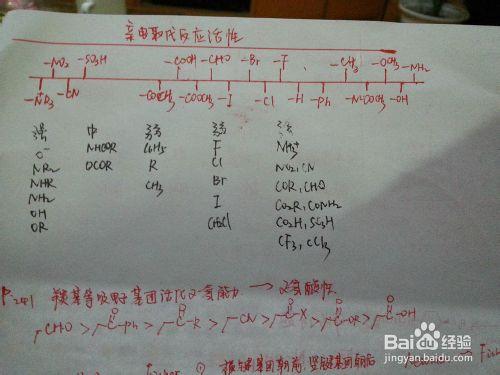 亲电取代反应活性
-NO₂ -SO₃H -COOH -CHO -Br -F -CH₃ -OCH₃ -NH₂
-CN -COCH₃ -COOCH₃ -I -Cl -H -Ph -OH
强 中 弱 弱 强
O⁻ NHCOR C₆H₅ F NH₃⁺
NR₂ OCOR R Cl NO₂, CN
NHR CH₃ Br COR, CHO
NH₂ I CO₂R, CONH₂
OH CH₂Cl CO₂H, SO₃H
OR CF₃, CCl₃
P.241 羰基等吸电子基团活化α氢能力 → α氢酸性
CHO > C-Ph > C-R > CN > C-X > C-OR > C-OH
O O O O O
Fischer ①
Baidu 百度 经验
jingyan.baidu.com